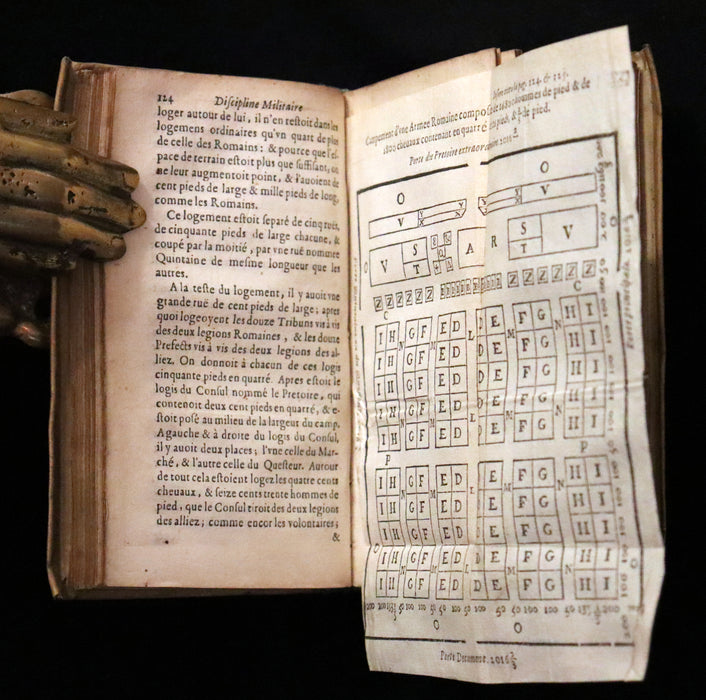 124 Discipline Militaire
loger autour de lui, il n'en restoit dans les
logemens ordinaires qu'vn quart de plus
de celle des Romains: & pource que l'es-
pace de terrain estoit plus que suffisant, on
ne leur augmentoit point, & l'auoient de
cent pieds de large & mille pieds de long,
comme les Romains.
Ce logement estoit separé de cinq ruës,
de cinquante pieds de large chacune, &
coupé par la moitié, par vne ruë nommée
Quintaine de mesme longueur que les
autres.
A la teste du logement, il y auoit vne
grande ruë de cent pieds de large; apres
quoi logeoyent les douze Tribuns vis à vis
des deux legions Romaines, & les douze
Prefects vis à vis des deux legions des al-
liez. On donnoit à chacun de ces logis
cinquante pieds en quarré. Apres estoit le
logis du Consul nommé le Pretoire, qui
contenoit deux cent pieds en quarré, & e-
stoit posé au milieu de la largeur du camp.
A gauche & à droite du logis du Consul,
il y auoit deux places; l'vne celle du Mar-
ché, & l'autre celle du Questeur. Autour
de tout cela estoient logez les quatre cents
cheuaux, & seize cents trente hommes de
pied, que le Consul tiroit des deux legions
des alliez; comme encor les volontaires;
&
pag. 124. & 125.
Campement d'vne Armee Romaine composée de hommes de pied & de
1800 cheuaux contenant en quarré pieds, & de pied.
Porte du Pretoire 2016
O O
V V
V S T A R S T V
Z Z Z Z Z Z Z Z Z Z Z Z
C C
I H G F E D D E F G H I
N M L M N
I H G F E D D E F G H I
I H G F E D D E F G H I
I H G F E D D E F G H I
I H G F E D D E F G H I
P P
I H G F E D D E F G H I
N M L M N
I H G F E D D E F G H I
I H G F E D D E F G H I
I H G F E D D E F G H I
I H G F E D D E F G H I
O O
Porte Decumene. 2016 2/3